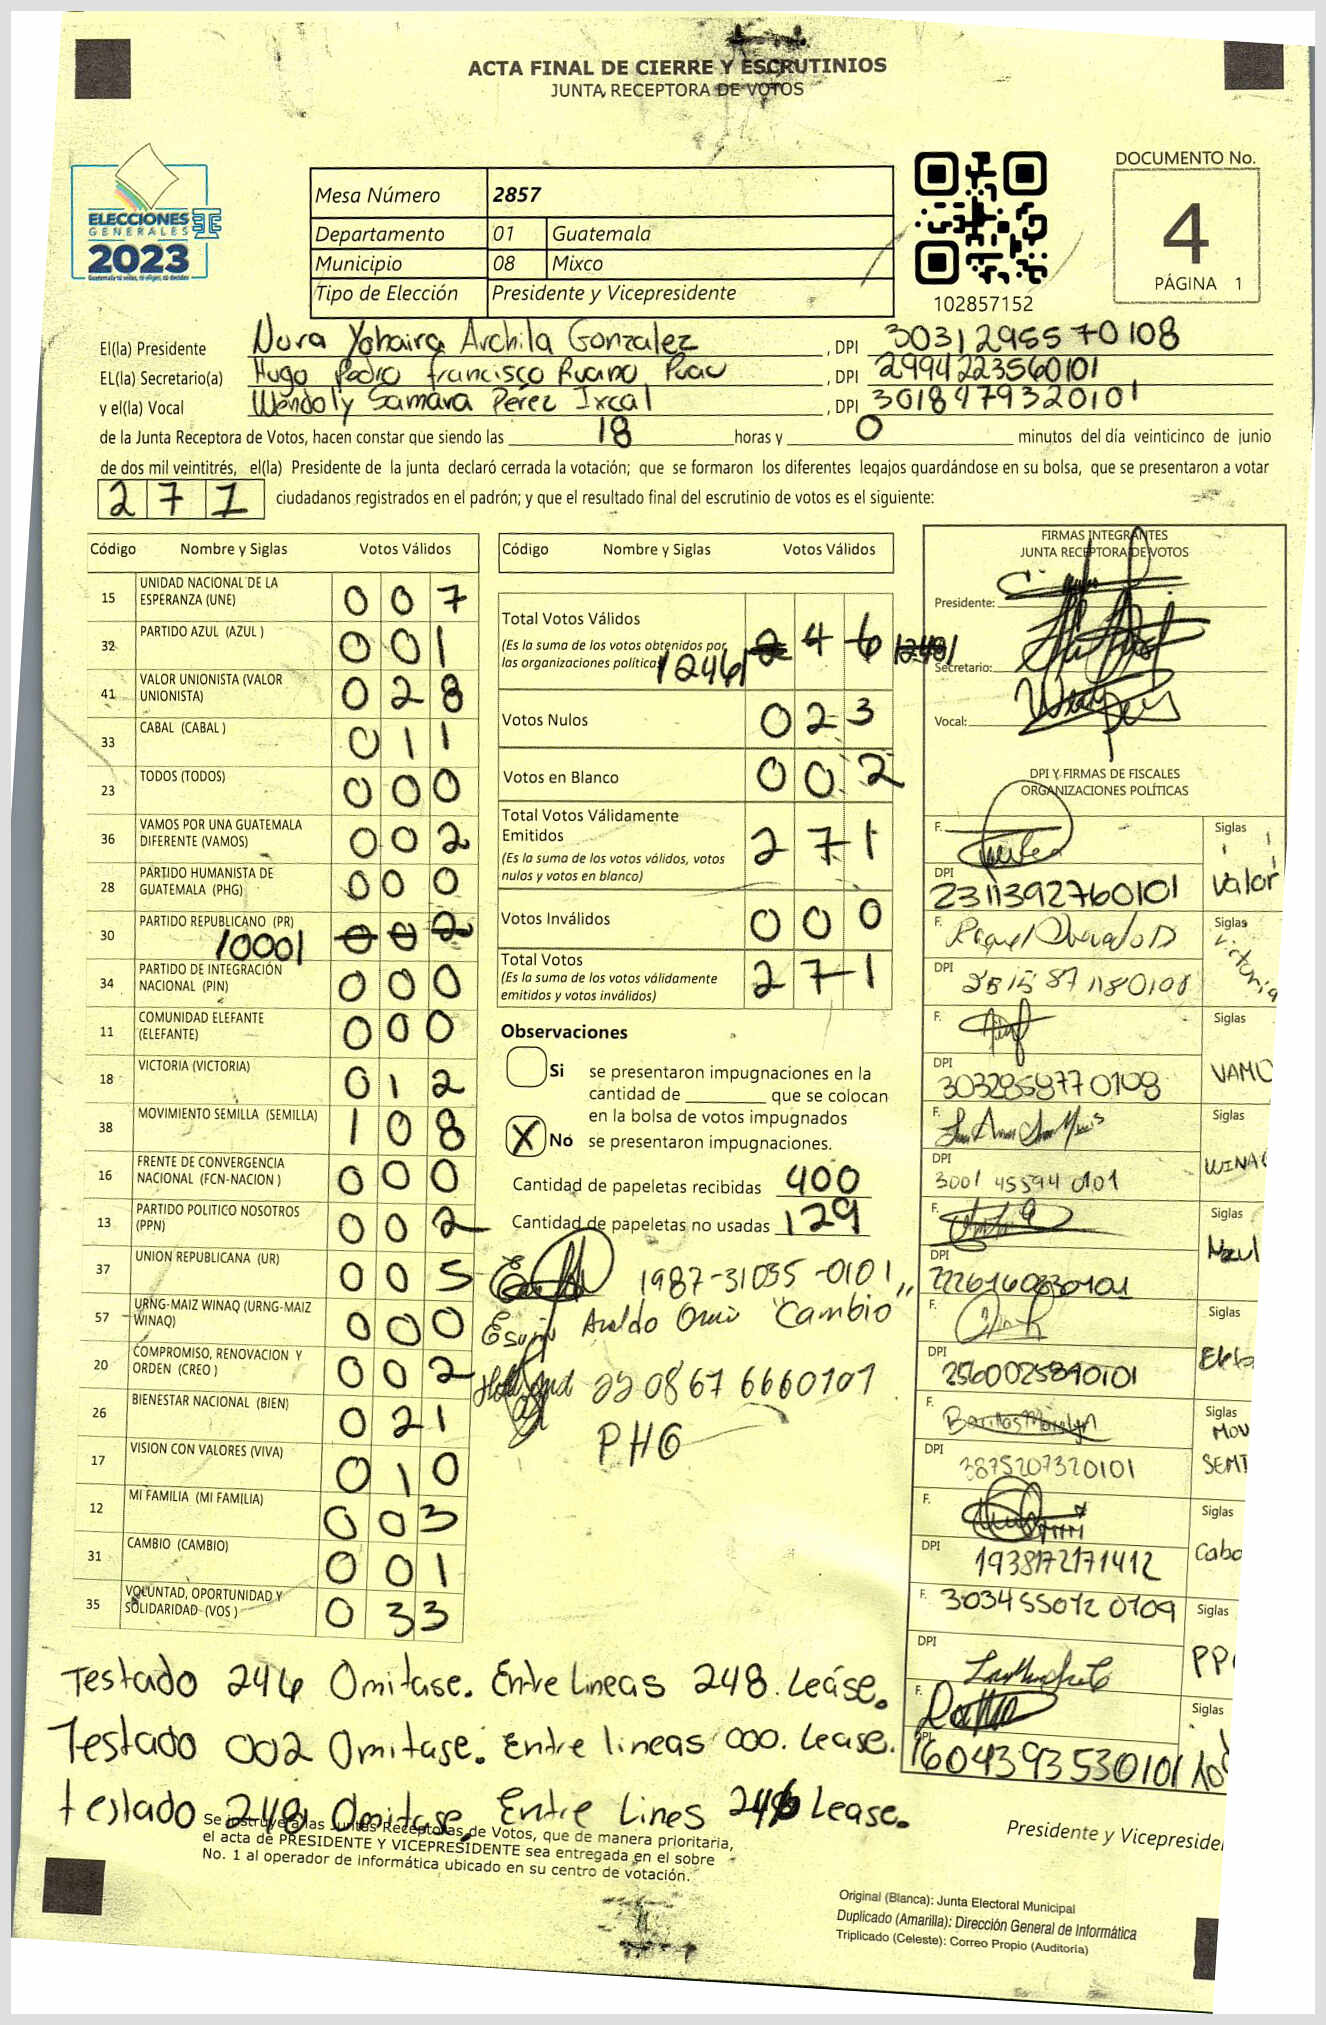 ACTA FINAL DE CIERRE Y ESCRUTINIOS
JUNTA RECEPTORA DE VOTOS
ELECCIONES
GENERALES
2023
Guatemala tú votas, tú eliges, tú decides
Mesa Número 2857
Departamento 01 Guatemala
Municipio 08 Mixco
Tipo de Elección Presidente y Vicepresidente
102857152
DOCUMENTO No.
4
PÁGINA 1
El(la) Presidente Nora Yohaira Archila Gonzalez, DPI 3031295570108
EL(la) Secretario(a) Hugo Pedro Francisco Ruano, DPI 2994223560101
y el(la) Vocal Wendoly Samara Pérez Ixcal, DPI 3018479320101
de la Junta Receptora de Votos, hacen constar que siendo las 18 horas y 0 minutos del día veinticinco de junio
de dos mil veintitrés, el(la) Presidente de la junta declaró cerrada la votación; que se formaron los diferentes legajos guardándose en su bolsa, que se presentaron a votar
271 ciudadanos registrados en el padrón; y que el resultado final del escrutinio de votos es el siguiente:
Código Nombre y Siglas Votos Válidos
15 UNIDAD NACIONAL DE LA ESPERANZA (UNE) 007
32 PARTIDO AZUL (AZUL ) 001
41 VALOR UNIONISTA (VALOR UNIONISTA) 028
33 CABAL (CABAL ) 011
23 TODOS (TODOS) 000
36 VAMOS POR UNA GUATEMALA DIFERENTE (VAMOS) 002
28 PARTIDO HUMANISTA DE GUATEMALA (PHG) 000
30 PARTIDO REPUBLICANO (PR) /000/ 002
34 PARTIDO DE INTEGRACIÓN NACIONAL (PIN) 000
11 COMUNIDAD ELEFANTE (ELEFANTE) 000
18 VICTORIA (VICTORIA) 012
38 MOVIMIENTO SEMILLA (SEMILLA) 108
16 FRENTE DE CONVERGENCIA NACIONAL (FCN-NACION ) 000
13 PARTIDO POLITICO NOSOTROS (PPN) 002
37 UNION REPUBLICANA (UR) 005
57 URNG-MAIZ WINAQ (URNG-MAIZ WINAQ) 000
20 COMPROMISO, RENOVACION Y ORDEN (CREO ) 002
26 BIENESTAR NACIONAL (BIEN) 021
17 VISION CON VALORES (VIVA) 010
12 MI FAMILIA (MI FAMILIA) 003
31 CAMBIO (CAMBIO) 001
35 VOLUNTAD, OPORTUNIDAD Y SOLIDARIDAD (VOS ) 033
Código Nombre y Siglas Votos Válidos
Total Votos Válidos 246 /248/
(Es la suma de los votos obtenidos por
las organizaciones políticas) /246/
Votos Nulos 023
Votos en Blanco 002
Total Votos Válidamente
Emitidos 271
(Es la suma de los votos válidos, votos
nulos y votos en blanco)
Votos Inválidos 000
Total Votos 271
(Es la suma de los votos válidamente
emitidos y votos inválidos)
Observaciones
Si se presentaron impugnaciones en la
cantidad de ________ que se colocan
en la bolsa de votos impugnados
X No se presentaron impugnaciones.
Cantidad de papeletas recibidas 400
Cantidad de papeletas no usadas 129
1987-31035-0101
"Cambio"
22 0867 6660101
PHG
FIRMAS INTEGRANTES
JUNTA RECEPTORA DE VOTOS
Presidente:
Secretario:
Vocal:
DPI Y FIRMAS DE FISCALES
ORGANIZACIONES POLÍTICAS
F. Siglas
DPI 2311392760101 Valor
F. Siglas
DPI 2515 87 1180108 Victoria
F. Siglas
DPI 3032858770108 VAMO
F. Siglas
DPI 3001 45594 0101 WINAQ
F. Siglas
DPI 2226160830101 Azul
F. Siglas
DPI 2560025890101 Elefa
F. Siglas
DPI 3875207320101 MOV SEMI
F. Siglas
DPI 1938172171412 Caba
F. 3034550120109 Siglas
DPI PPN
F. Siglas
DPI 1604393530101
Testado 246 Omitase. Entre Lineas 248. Leáse.
Testado 002 Omitase. Entre lineas 000. Lease.
testado 248 Omitase. Entre Lines 246 Lease.
Se instruye a las Juntas Receptoras de Votos, que de manera prioritaria,
el acta de PRESIDENTE Y VICEPRESIDENTE sea entregada en el sobre
No. 1 al operador de informática ubicado en su centro de votación.
Presidente y Vicepresiden
Original (Blanca): Junta Electoral Municipal
Duplicado (Amarilla): Dirección General de Informática
Triplicado (Celeste): Correo Propio (Auditoría)